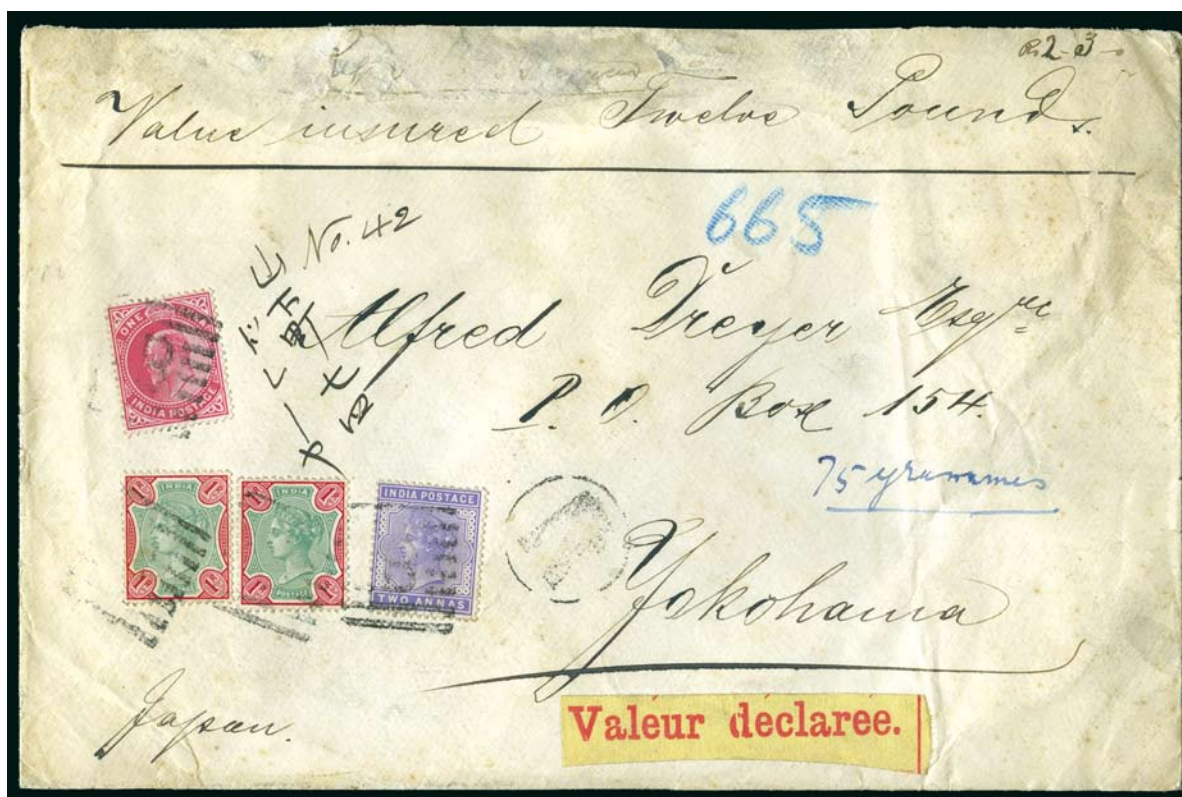 Rs 2-3-0
Value insured Twelve Pounds.
665
No. 42
山下町
七四
Alfred Dreyer Esqre
P. O. Box 154.
75 grammes
Yokohama
Japan.
Valeur déclarée.
ONE
INDIA POSTAGE
INDIA
1R 1R
1R 1R
INDIA
1R 1R
POSTAGE
1R 1R
INDIA POSTAGE
TWO ANNAS